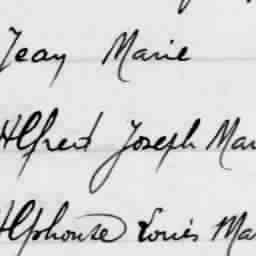 Jean Marie
Alfred Joseph Mar
Alphonse Louis Ma